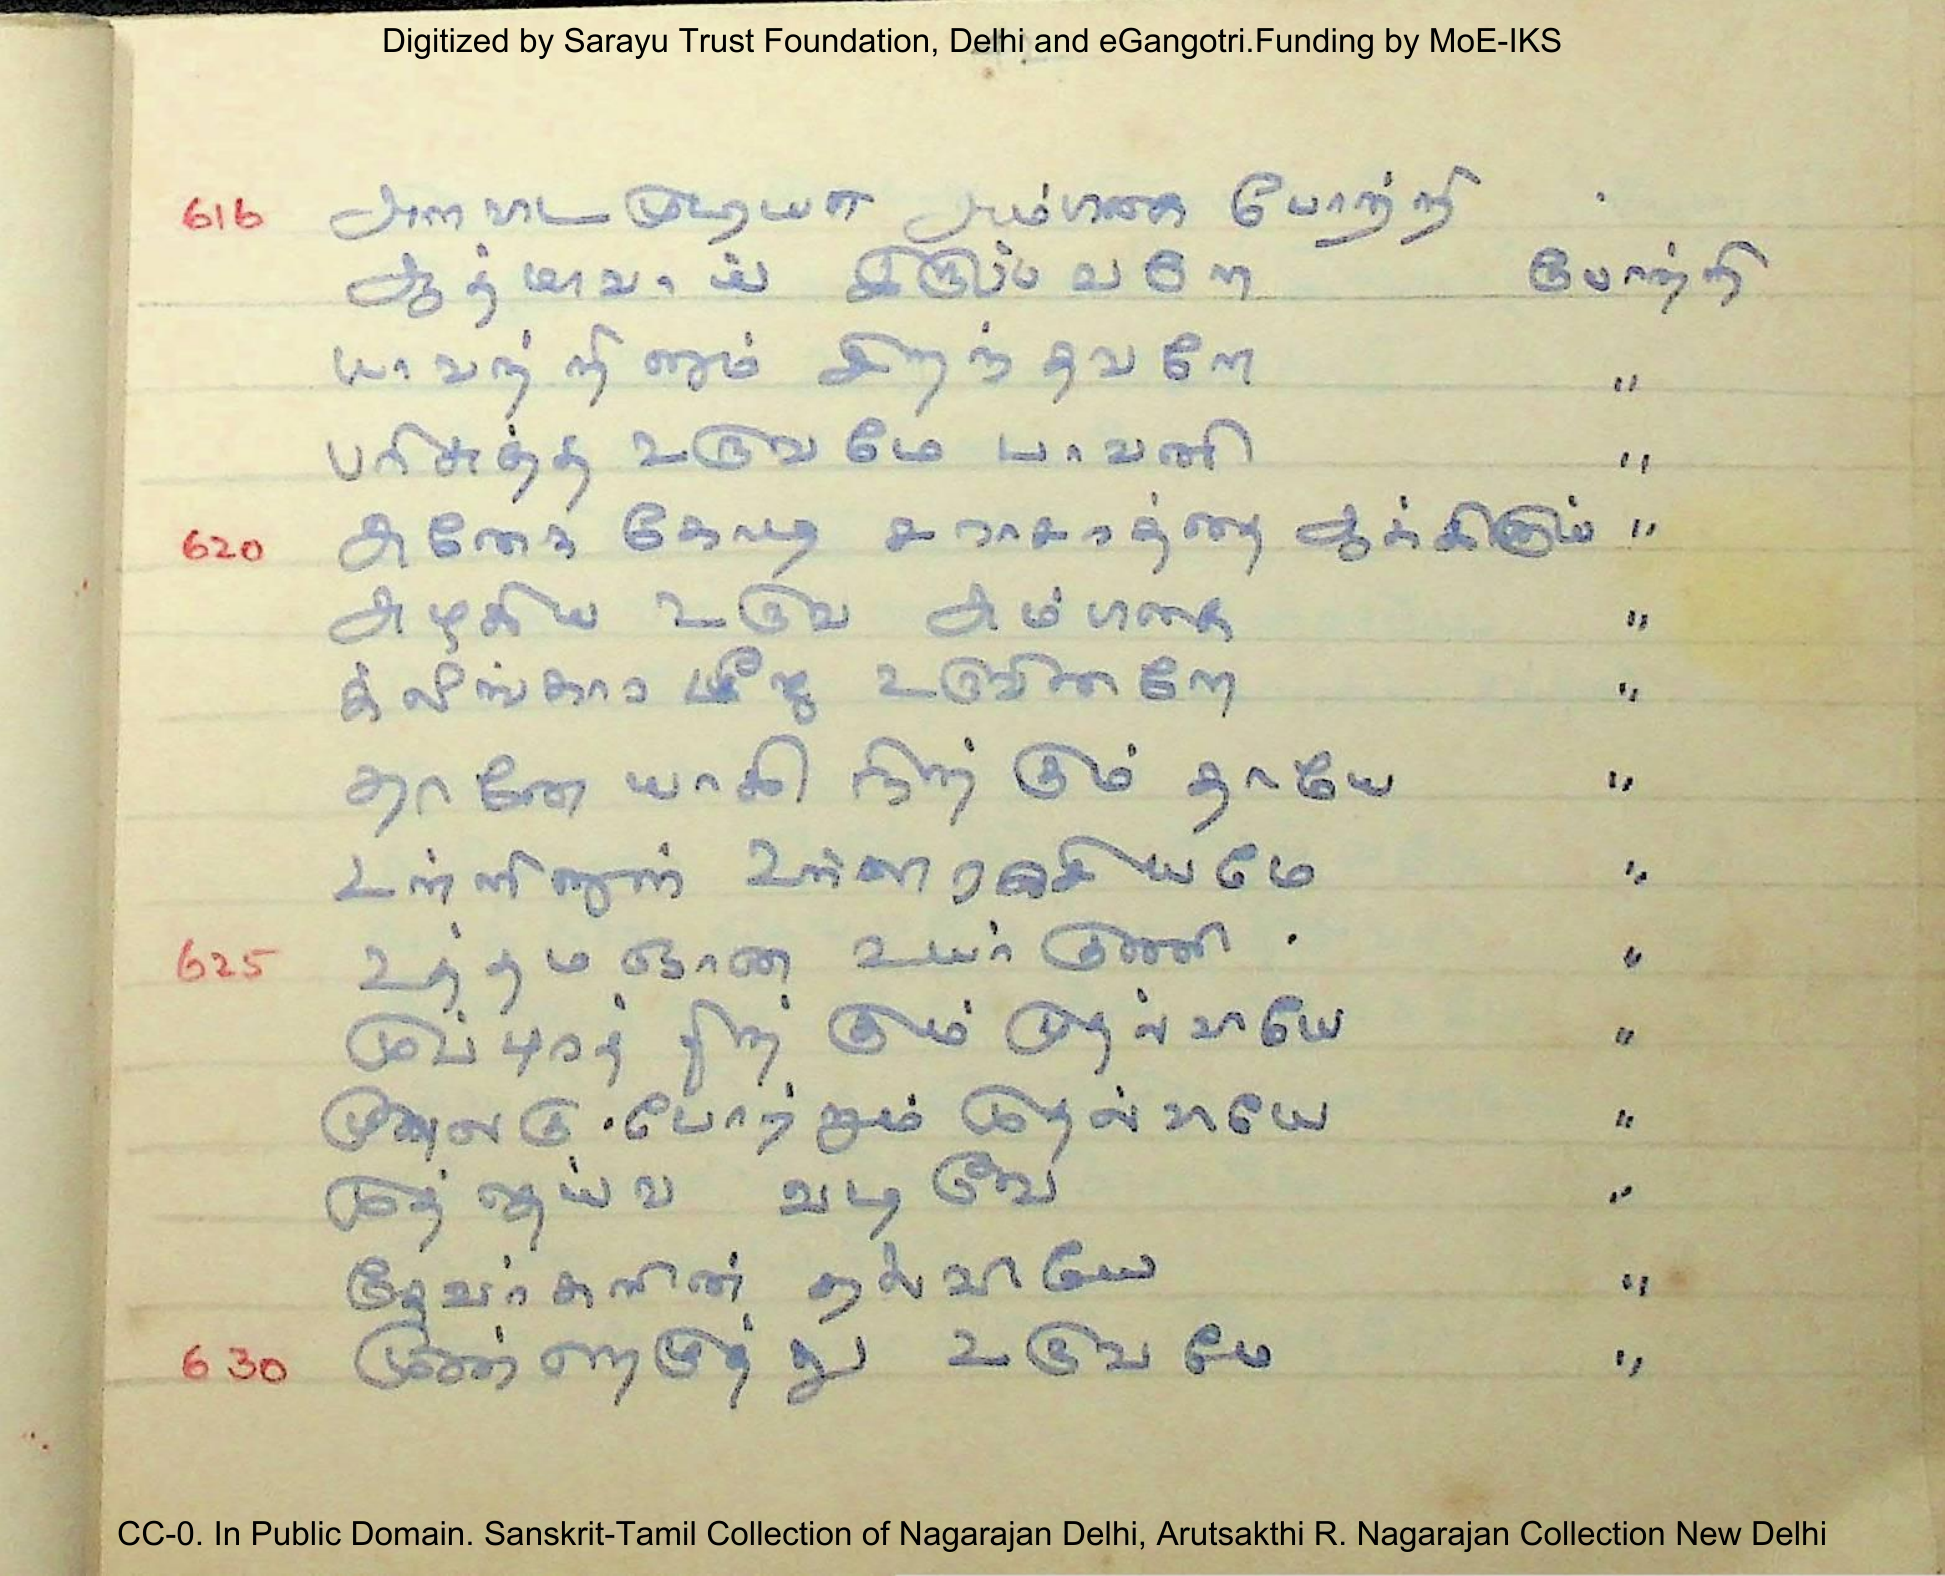 Digitized by Sarayu Trust Foundation, Delhi and eGangotri.Funding by MoE-IKS
616 அம்பிகை போற்றி
ஆத்மாவாய் இருப்பவளே போற்றி
யாவற்றினும் சிறந்தவளே "
பரிசுத்த உருவமே பாவனி "
620 அனேக கோடி சராசரத்தை ஆக்கிடும் "
அழகிய உரு அம்பிகை "
க்லீங்கார பீஜ உருவினளே "
தானே யாகி நிற்கும் தாயே "
உள்ளினுள் உள்ள ரகசியமே "
625 உத்தம ஞான உயர் குணி "
முப்புரத் நிற் கும் முதல்வியே "
போற்றும் முதல்வியே "
முத் தெய்வ வடிவே "
தேவர்களின் தலைவியே "
630 உருவமே "
CC-0. In Public Domain. Sanskrit-Tamil Collection of Nagarajan Delhi, Arutsakthi R. Nagarajan Collection New Delhi